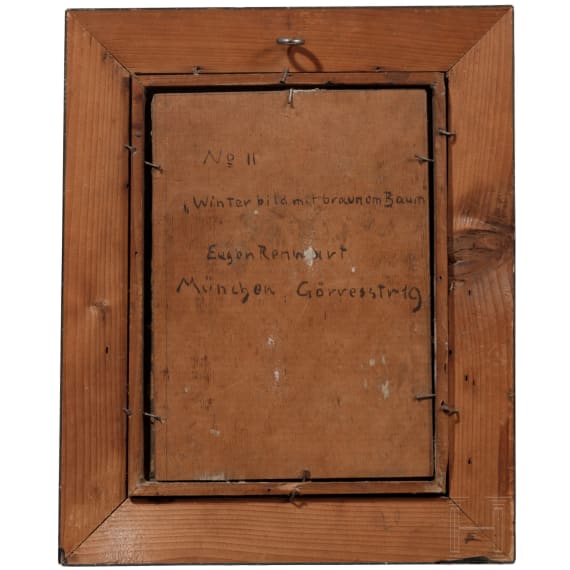 No 11
„Winterbild mit braunem Baum
Eugen
München, Görresstr 19